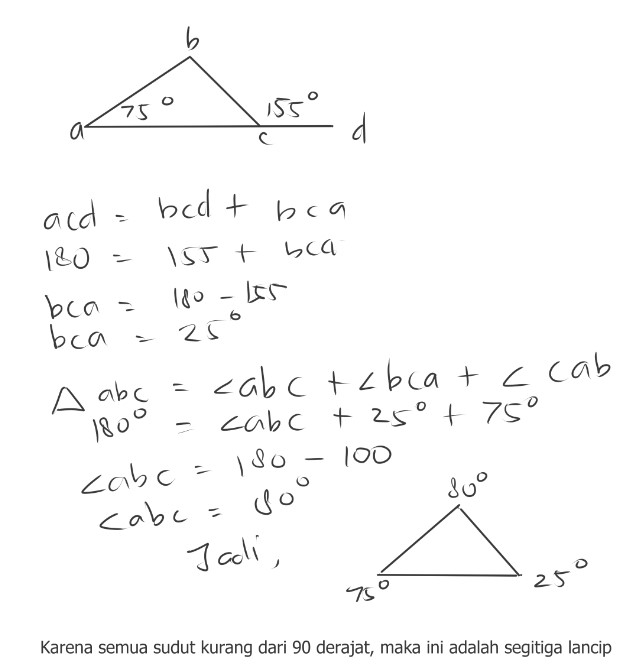 b
75° 155°
a c d
acd = bcd + bca
180 = 155 + bca
bca = 180 - 155
bca = 25°
△ abc = <abc + <bca + < cab
180° = <abc + 25° + 75°
<abc = 180 - 100
<abc = 80°
Jadi,
80°
75° 25°
Karena semua sudut kurang dari 90 derajat, maka ini adalah segitiga lancip